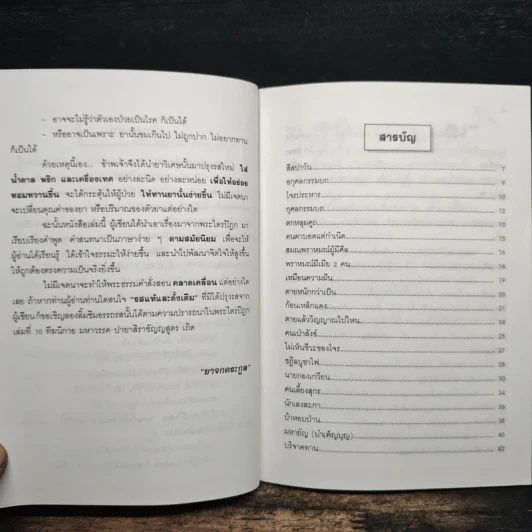 - อาจจะไม่รู้ว่าตัวเองป่วยเป็นโรค ก็เป็นได้
- หรืออาจเป็นเพราะ ยานั้นขมเกินไป ไม่ถูกปาก ไม่อยากทาน
ก็เป็นได้
ด้วยเหตุนี้เอง... ข้าพเจ้าจึงได้นำยาวิเศษนั้นมาปรุงรสใหม่ ใส่
น้ำตาล พริก และเครื่องเทศ อย่างละนิด อย่างละหน่อย เพื่อให้อร่อย
หอมหวานขึ้น จะได้กระตุ้นให้ผู้ป่วย ให้ทานยานั้นง่ายขึ้น ไม่มีเจตนา
จะเปลี่ยนคุณค่าของยา หรือปริมาณของตัวยาแต่อย่างใด
ฉะนั้นหนังสือเล่มนี้ ผู้เขียนได้นำเอาเรื่องมาจากพระไตรปิฎก มา
เรียบเรียงคำพูด คำสนทนาเป็นภาษาง่าย ๆ ตามสมัยนิยม เพื่อจะให้
ผู้อ่านได้เรียนรู้ ได้เข้าใจธรรมะให้ง่ายขึ้น และนำไปพัฒนาจิตใจให้สูงขึ้น
ให้ถูกต้องตรงความเป็นจริงยิ่งขึ้น
ไม่มีเจตนาจะทำให้พระธรรมคำสั่งสอน คลาดเคลื่อน แต่อย่างใด
เลย ถ้าหากท่านผู้อ่านท่านใดสนใจ "รสแท้และดั้งเดิม" ที่มิได้ปรุงรสจาก
ผู้เขียน ก็ขอเชิญลองลิ้มชิมอรรถรสนั้นได้ตามความปรารถนาในพระไตรปิฎก
เล่มที่ 10 ทีฆนิกาย มหาวรรค ปายาสิราชัญญสูตร เถิด
"ยาจกตระกูล"
สารบัญ
ตีสปาวัน 7
อกุศลกรรมบถ
โจรประหาร
กุศลกรรมบถ
ตกหลุมคูถ
คนตาบอดแต่กำเนิด
สมณพราหมณ์ผู้มีศีล
พราหมณ์มีเมีย 2 คน
เหมือนความฝัน
ตายหนักกว่าเป็น
ก้อนเหล็กแดง
ตายแล้ววิญญาณไปไหน
คนเป่าสังข์
ไม่เห็นชีวะของโจร
ชฎิลบูชาไฟ 28
นายกองเกวียน
คนเลี้ยงสุกร 34
นักเลงสะกา 36
บ้าหอบป่าน 38
มหายัญ (บำเพ็ญบุญ) 40
บริจาคทาน 42